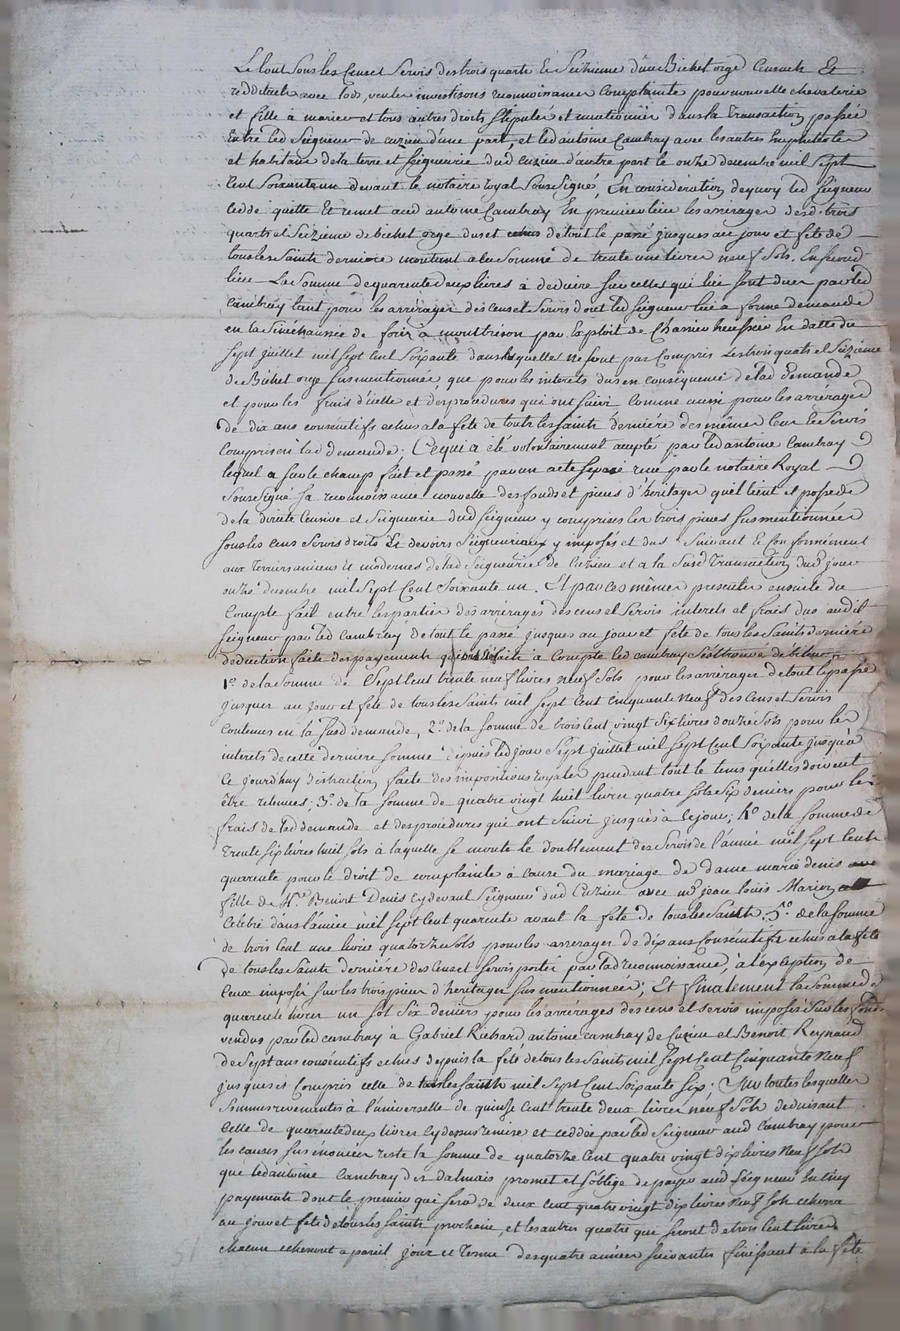 Le tout sous les Cens et Servis des trois quarts et Seizieme d'un Bichet orge Censuels Et
reddituels avec lods, ventes investisons reconnoissances Complainte pour nouvelle chevalerie
et fille a marier et tous autres droits Stipulés et mentionnés dans la transaction passée
Entre led Seigneur de cuzieu d'une part, et led antoine Cambray avec les autres Emphiteotes
et habitans de la terre et seigneurie dud Cuzieu d'autre part le onze decembre mil Sept
Cent Soixante un devant le notaire royal Soussigné, En considération dequoy led Seigneur
cedde quitte Et remet aud antoine Cambray En premier lieu les arrérages desd. trois
quarts et Seizieme de bichet orge dus et echus de tout le passé jusques au jour et fête de
tous les Saints dernière montant a la Somme de trente une livres neuf Sols. En second
lieu La Somme de quarente deux livres à deduire sur celles qui lui sont dues par led
Cambray tant pour les arrérages des Cens et Servis dont led Seigneur lui a formé demande
en la Sénéchaussée de forêz à montbrison par Exploit de en datte du
sept juillet mil sept Cent Soixante dans lesquelles ne sont pas Compris les trois quarts et Seizieme
de Bichet orge susmentionnés, que pour les interets dus en conséquence de lad demande
et pour les frais d'icelle et des procedures qui ont suivi Comme aussi pour les arrérages
de dix ans consécutifs echus a la fête de toutts les Saints dernière des mêmes Cens et Servis
Compris en lad demande; Ce qui a été volontairement accepté par led antoine Cambray
lequel a sur le champ fait et passé par un acte separé reçu par le notaire Royal
Soussigné sa reconnoissance nouvelle des fonds et pieces d'heritages qu'il tient et possede
de la directe Censive et Seigneurie dud Seigneur y comprises les trois pieces susmentionnées
sous les cens servis droits Et devoirs Seigneuriaux y imposés et dus Suivant Et Conformément
aux terriers anciens et modernes de lad Seigneurie de Cuzieu et a la Susd Transaction dud jour
onze decembre mil Sept Cent Soixante un. Et par ces mêmes presentes ensuite du
Compte fait entre les parties des arrérages des cens et Servis interets et frais dus audit
Seigneur par led Cambray de tout le passé jusques au jour et fête de tous les Saints dernière
deduction faite des payements a Compte led cambray
1º. de la somme de Sept Cent trente neuf livres neuf Sols pour les arrérages de tout le passé
jusques au jour et fête de tous les Saints mil sept Cent Cinquante neuf des Cens et Servis
Contenus en la Susd demande, 2º. de la somme de trois Cent vingt Six livres douze Sols pour les
interets de cette dernière somme depuis led jour Sept juillet mil sept Cent Soixante jusqu'à
Ce jourd'huy distraction faite des impositions royales pendant tout le tems qu'elles doivent
être retenues. 3º. de la somme de quatre vingt huit livres quatre sols Six deniers pour les
frais de lad demande et des procédures qui ont Suivi jusqu'à ce jour; 4º de la somme de
Trente Six livres huit sols à laquelle se monte le doublement des Servis de l'année mil sept Cent
quarente pour le droit de complainte à cause du mariage de dame marie denis
fille de Mr. Benoit Denis Cy devant Seigneur dud Cuzieu avec mr. jean louis Marion
Celebré dans l'année mil sept Cent quarente avant la fête de tous les Saints. 5º. de la somme
de trois Cent une livre quatorze sols pour les arrerages de dix ans Consécutifs echus a la fête
de tous les Saints dernière des Cens et servis portés par lad reconnoissance, à l'exception de
Ceux imposés sur les trois pieces d'héritages susmentionnées; Et finalement la somme de
quarente livres un sol Six deniers pour les arrérages des cens et servis imposés sur les fonds
vendus par led cambray à Gabriel Richard, antoine cambray de Cuzieu et Benoit Reynaud
de Sept ans consécutifs echus depuis la fête de tous les Saints mil sept Cent Cinquante neuf
jusques et Compris celle de tous les Saints mil sept Cent Soixante six; toutes lesquelles
Sommes revenantes à l'universelle de quinze Cent trente deux livres neuf Sols deduisant
Celle de quarente deux livres Cy dessus remise et ceddée par led Seigneur aud Cambray pour
les causes sus énoncées reste la somme de quatorze Cent quatre vingt dix livres neuf sols
que led antoine Cambray dit Dalmais promet et s'oblige de payer aud Seigneur En cinq
payements dont le premier qui sera de deux cent quatre vingt dix livres neuf sols echerra
au jour et fête de tous les Saints prochaine, et les autres quatre qui seront de trois Cent livres
chacun echerront a pareil jour et terme des quatre années Suivantes finissant à la fête